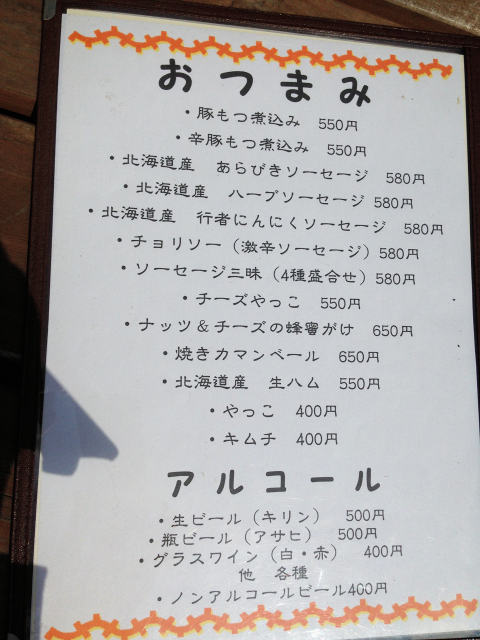 おつまみ
・豚もつ煮込み 550円
・辛豚もつ煮込み 550円
・北海道産 あらびきソーセージ 580円
・北海道産 ハーブソーセージ 580円
・北海道産 行者にんにくソーセージ 580円
・チョリソー（激辛ソーセージ）580円
・ソーセージ三昧（4種盛合せ）580円
・チーズやっこ 550円
・ナッツ＆チーズの蜂蜜がけ 650円
・焼きカマンベール 650円
・北海道産 生ハム 550円
・やっこ 400円
・キムチ 400円
アルコール
・生ビール（キリン） 500円
・瓶ビール（アサヒ） 500円
・グラスワイン（白・赤） 400円
他 各種
・ノンアルコールビール400円